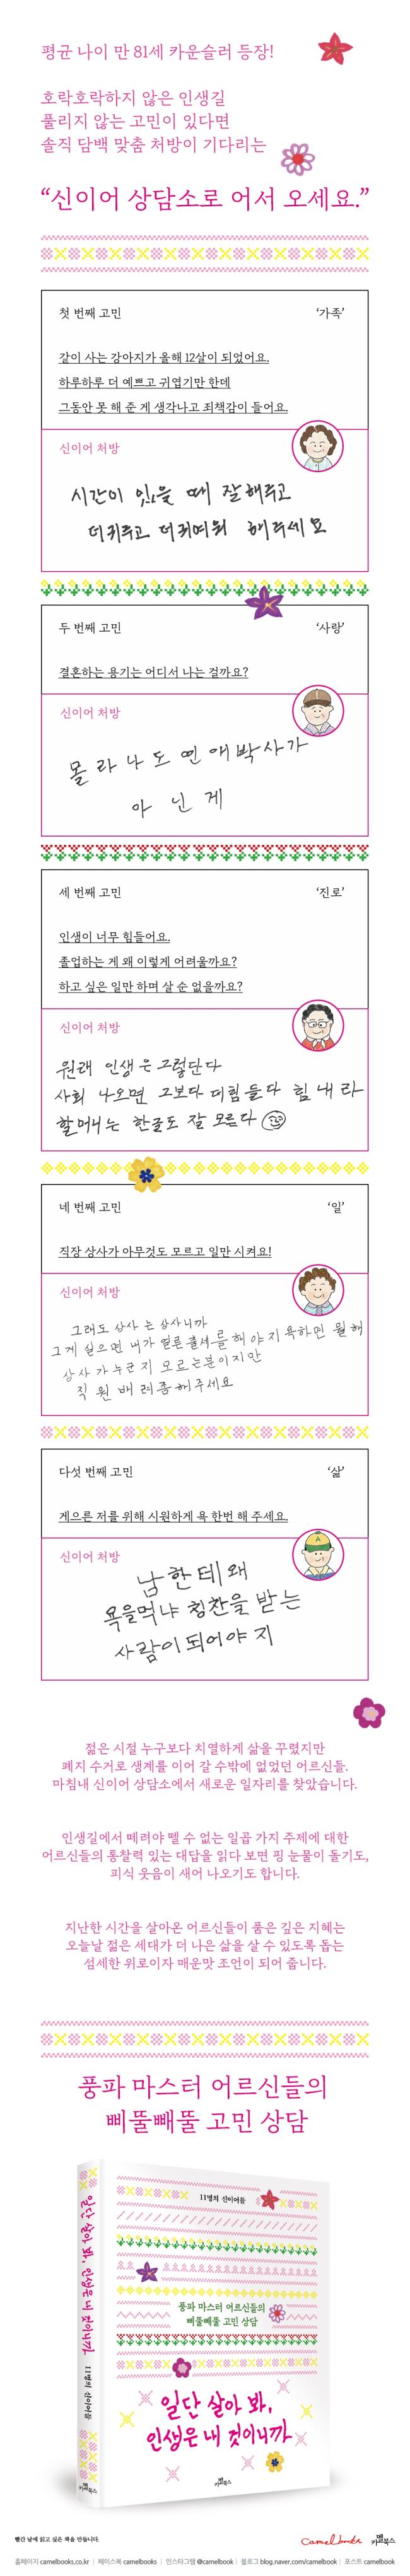 평균 나이 만 81세 카운슬러 등장!
호락호락하지 않은 인생길
풀리지 않는 고민이 있다면
솔직 담백 맞춤 처방이 기다리는
“신이어 상담소로 어서 오세요.”
첫 번째 고민 ‘가족’
같이 사는 강아지가 올해 12살이 되었어요.
하루하루 더 예쁘고 귀엽기만 한데
그동안 못 해 준 게 생각나고 죄책감이 들어요.
신이어 처방
시간이 있을 때 잘해주고
더키주고 더귀여워 해주세요
두 번째 고민 ‘사랑’
결혼하는 용기는 어디서 나는 걸까요?
신이어 처방
몰라 나도 연애박사가
아닌게
세 번째 고민 ‘진로’
인생이 너무 힘들어요.
졸업하는 게 왜 이렇게 어려울까요?
하고 싶은 일만 하며 살 순 없을까요?
신이어 처방
원래 인생은 그렇단다
사회 나오면 그보다 더힘들다 힘내라
할머니는 한글도 잘 모른다
네 번째 고민 ‘일’
직장 상사가 아무것도 모르고 일만 시켜요!
신이어 처방
그래도 상사는 상사니까
그게 싫으면 내가 얼른 출세를 해야지 욕하면 뭘해
상사가 누군지 모르는분이지만
직원 배려좀해주세요
다섯 번째 고민 ‘삶’
게으른 저를 위해 시원하게 욕 한번 해 주세요.
신이어 처방
남한테 왜
욕을먹냐 칭찬을 받는
사람이 되어야지
젊은 시절 누구보다 치열하게 삶을 꾸렸지만
폐지 수거로 생계를 이어 갈 수밖에 없었던 어르신들.
마침내 신이어 상담소에서 새로운 일자리를 찾았습니다.
인생길에서 떼려야 뗄 수 없는 일곱 가지 주제에 대한
어르신들의 통찰력 있는 대답을 읽다 보면 핑 눈물이 돌기도,
피식 웃음이 새어 나오기도 합니다.
지난한 시간을 살아온 어르신들이 품은 깊은 지혜는
오늘날 젊은 세대가 더 나은 삶을 살 수 있도록 돕는
섬세한 위로이자 매운맛 조언이 되어 줍니다.
풍파 마스터 어르신들의
삐뚤빼뚤 고민 상담
11명의 신이어들
풍파 마스터 어르신들의
삐뚤빼뚤 고민 상담
일단 살아 봐,
인생은 내 것이니까
카멜북스
일단 살아 봐, 인생은 내 것이니까
11명의 신이어들
카멜북스
빨간 날에 읽고 싶은 책을 만듭니다.
Camelbooks 카멜북스
홈페이지 camelbooks.co.kr | 페이스북 camelbooks | 인스타그램 @camelbook | 블로그 blog.naver.com/camelbook | 포스트 camelbook